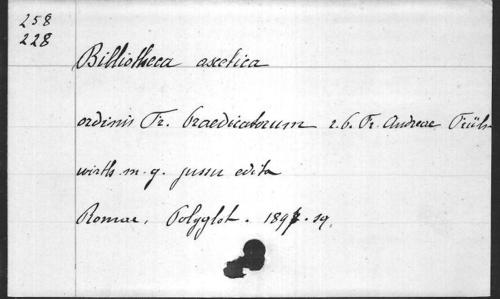 258
228
Bibliotheca ascetica
ordinis Fr. Praedicatorum r. b. Fr. Andreae Früh-
wirth m. g. jussu edita
Romae. Polyglot. 189 . 19.